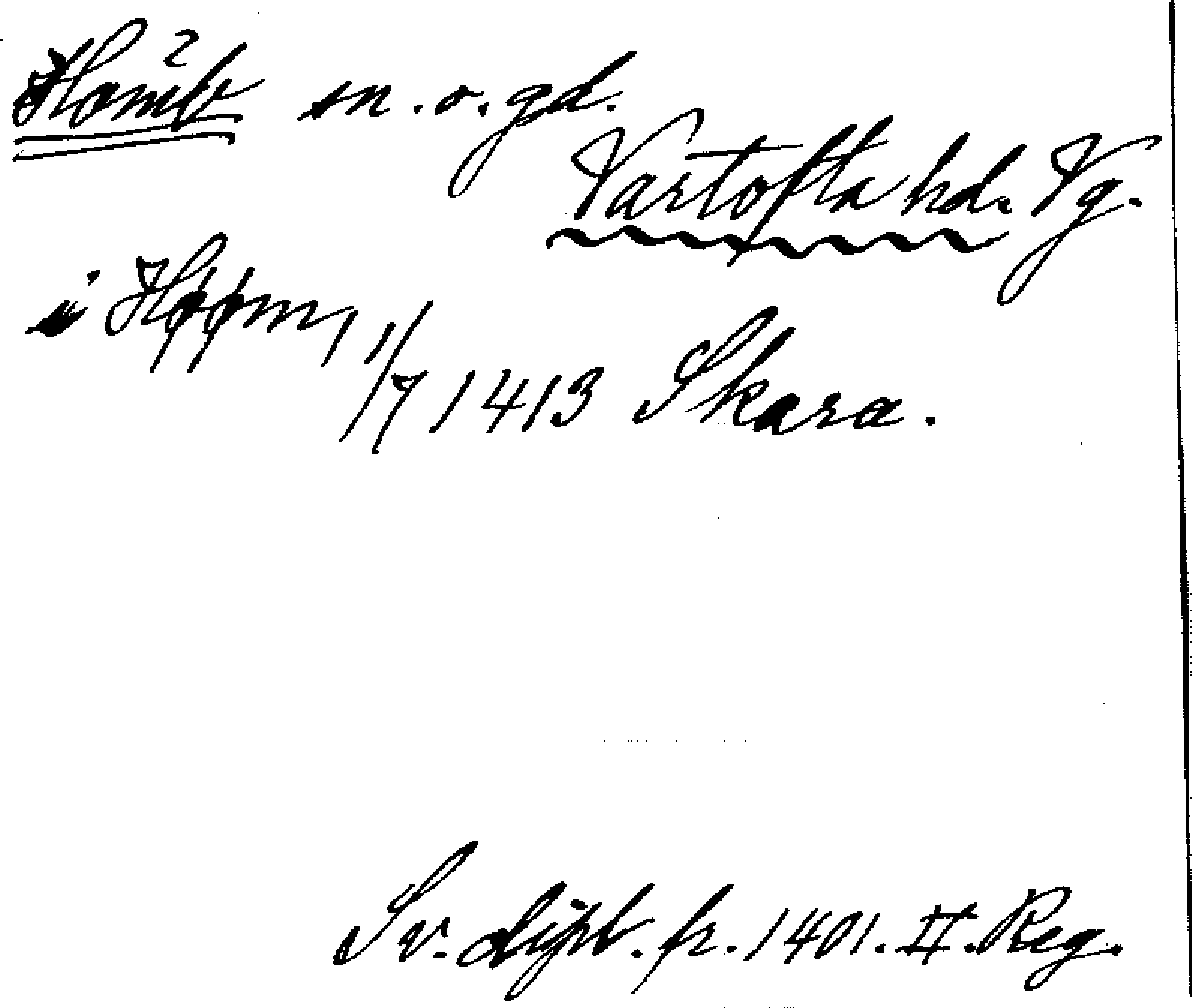 Hömb sn. o. gd.
Vartofta hd. Vg.
i Høøm, 1/7 1413 Skara.
Sv. dipl. fr. 1401. II. Reg.